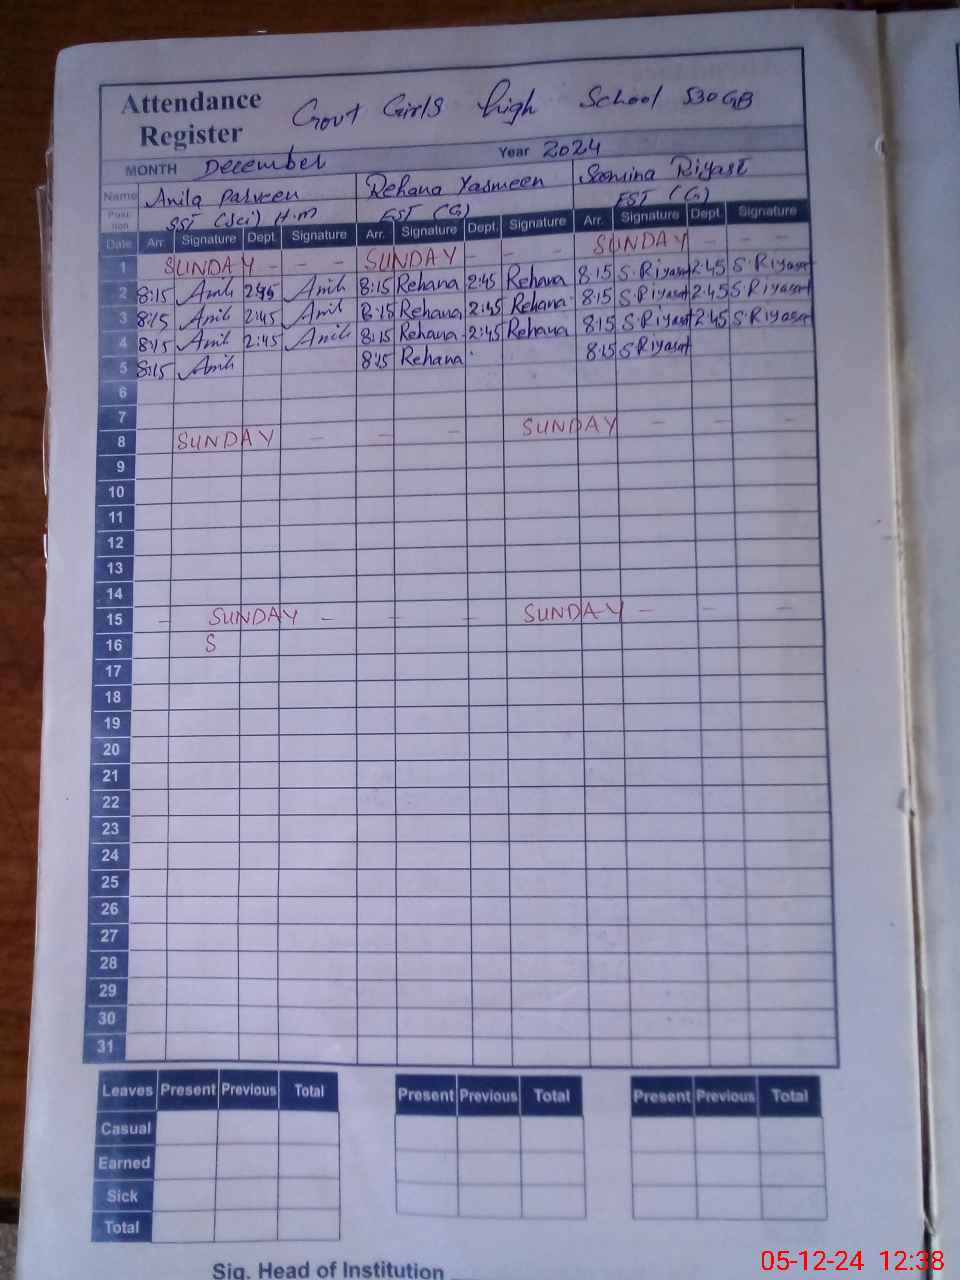 Attendance Register Govt Girls High School 530 GB
MONTH December Year 2024
Name Anila Parveen Rehana Yasmeen Samina Riyast
Position SST (Sci) H.M EST (G) EST (G)
Date Arr. Signature Dept. Signature Arr. Signature Dept. Signature Arr. Signature Dept. Signature
1 SUNDAY - - - SUNDAY - - - SUNDAY - - -
2 8:15 Anila 2:45 Anila 8:15 Rehana 2:45 Rehana 8:15 S.Riyasat 2:45 S.Riyasat
3 8:15 Anila 2:45 Anila 8:15 Rehana 2:45 Rehana 8:15 S.Riyasat 2:45 S.Riyasat
4 8:15 Anila 2:45 Anila 8:15 Rehana 2:45 Rehana 8:15 S.Riyasat 2:45 S.Riyasat
5 8:15 Anila 8:15 Rehana 8:15 S Riyasat
6
7
8 SUNDAY - - - SUNDAY - - -
9
10
11
12
13
14
15 - SUNDAY - - - SUNDAY - - -
16 S
17
18
19
20
21
22
23
24
25
26
27
28
29
30
31
Leaves Present Previous Total Present Previous Total Present Previous Total
Casual
Earned
Sick
Total
Sig. Head of Institution
05-12-24 12:38